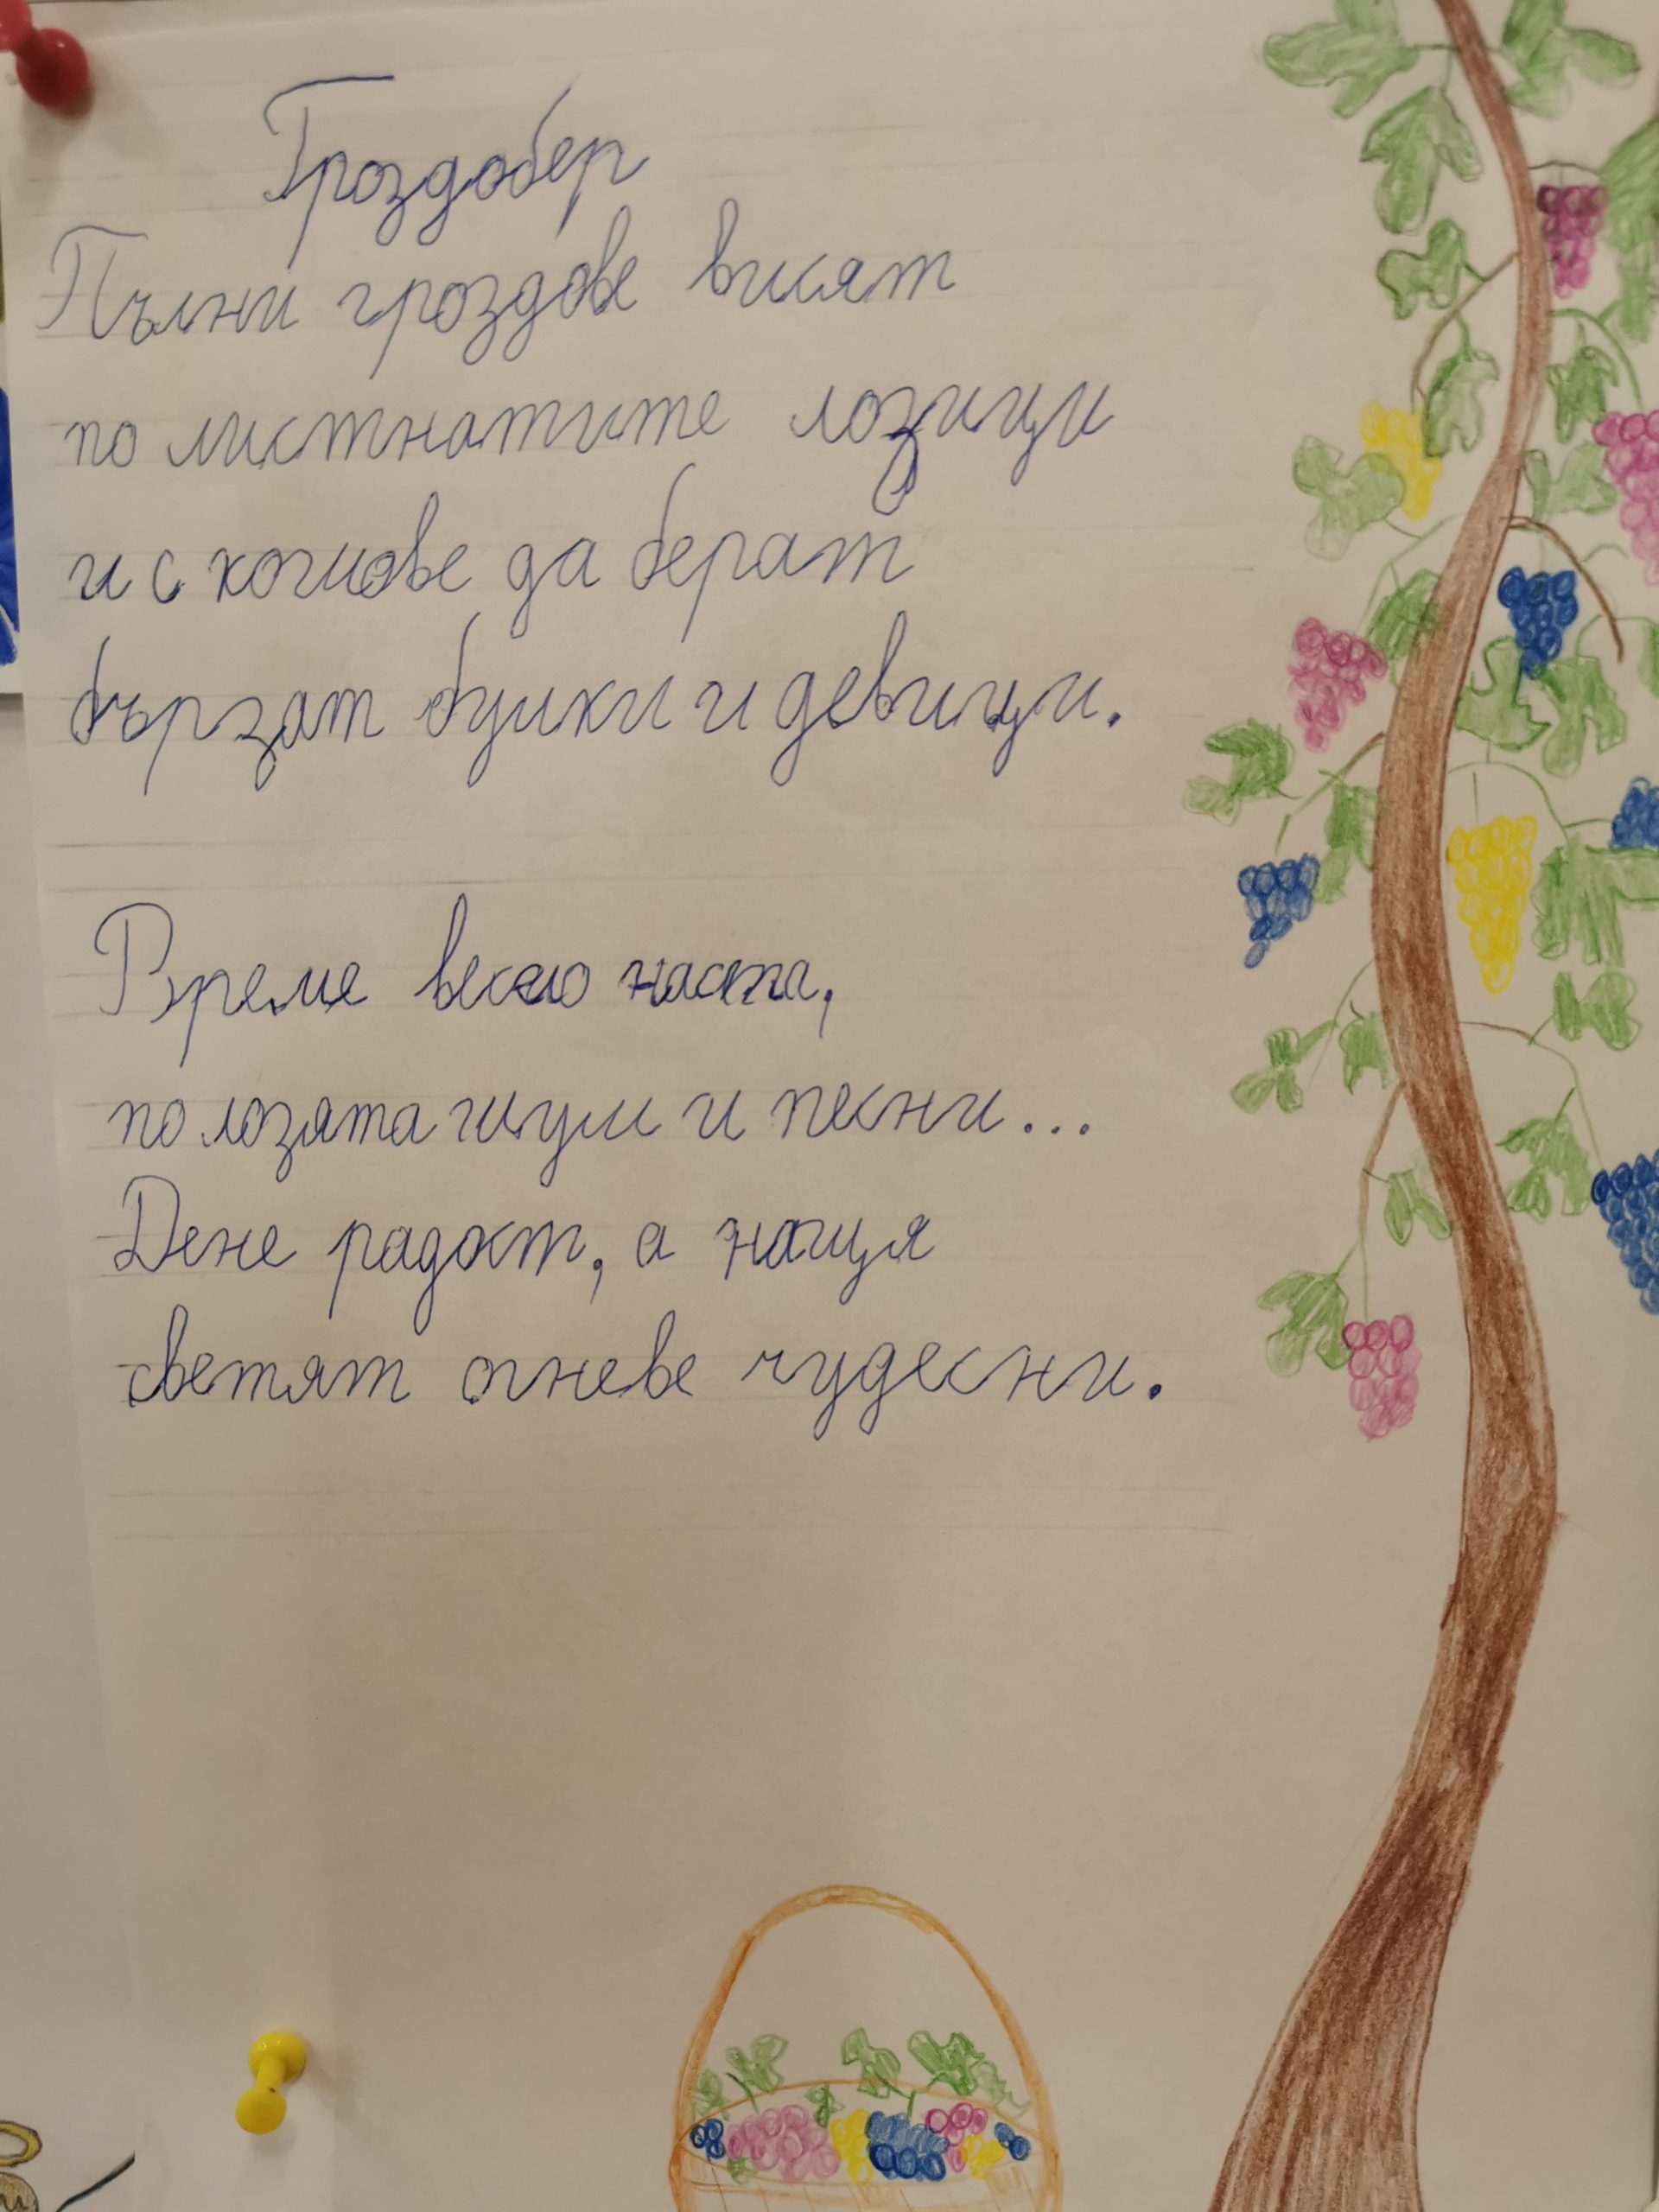 Гроздобер
Пълни гроздове висят
по листнатите лозици
и с кошове да берат
бързат булки и девици.
Време весело наста,
по лозята шум и песни...
Дене радост, а нощя
светят огневе чудесни.